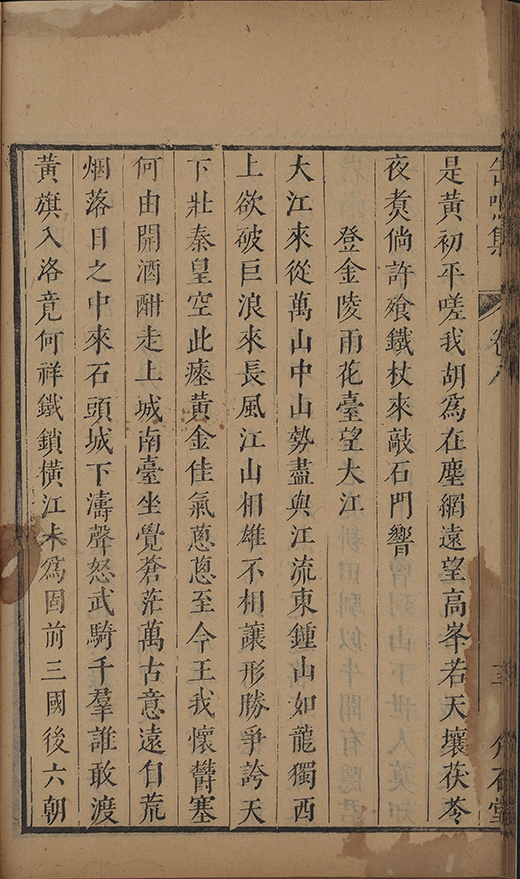 集 卷八
是黃初平嗟我胡爲在塵網遠望高峯若天壤茯苓
夜煑倘許飱鐵杖來敲石門響
登金陵雨花臺望大江
大江來從萬山中山勢盡與江流東鍾山如龍獨西
上欲破巨浪來長風江山相雄不相讓形勝爭誇天
下壯秦皇空此瘞黃金佳氣蔥蔥至今王我懷欝塞
何由開酒酣走上城南臺坐覺蒼茫萬古意遠自荒
烟落日之中來石頭城下濤聲怒武騎千羣誰敢渡
黃旗入洛竟何祥鐵鎖橫江未爲固前三國後六朝